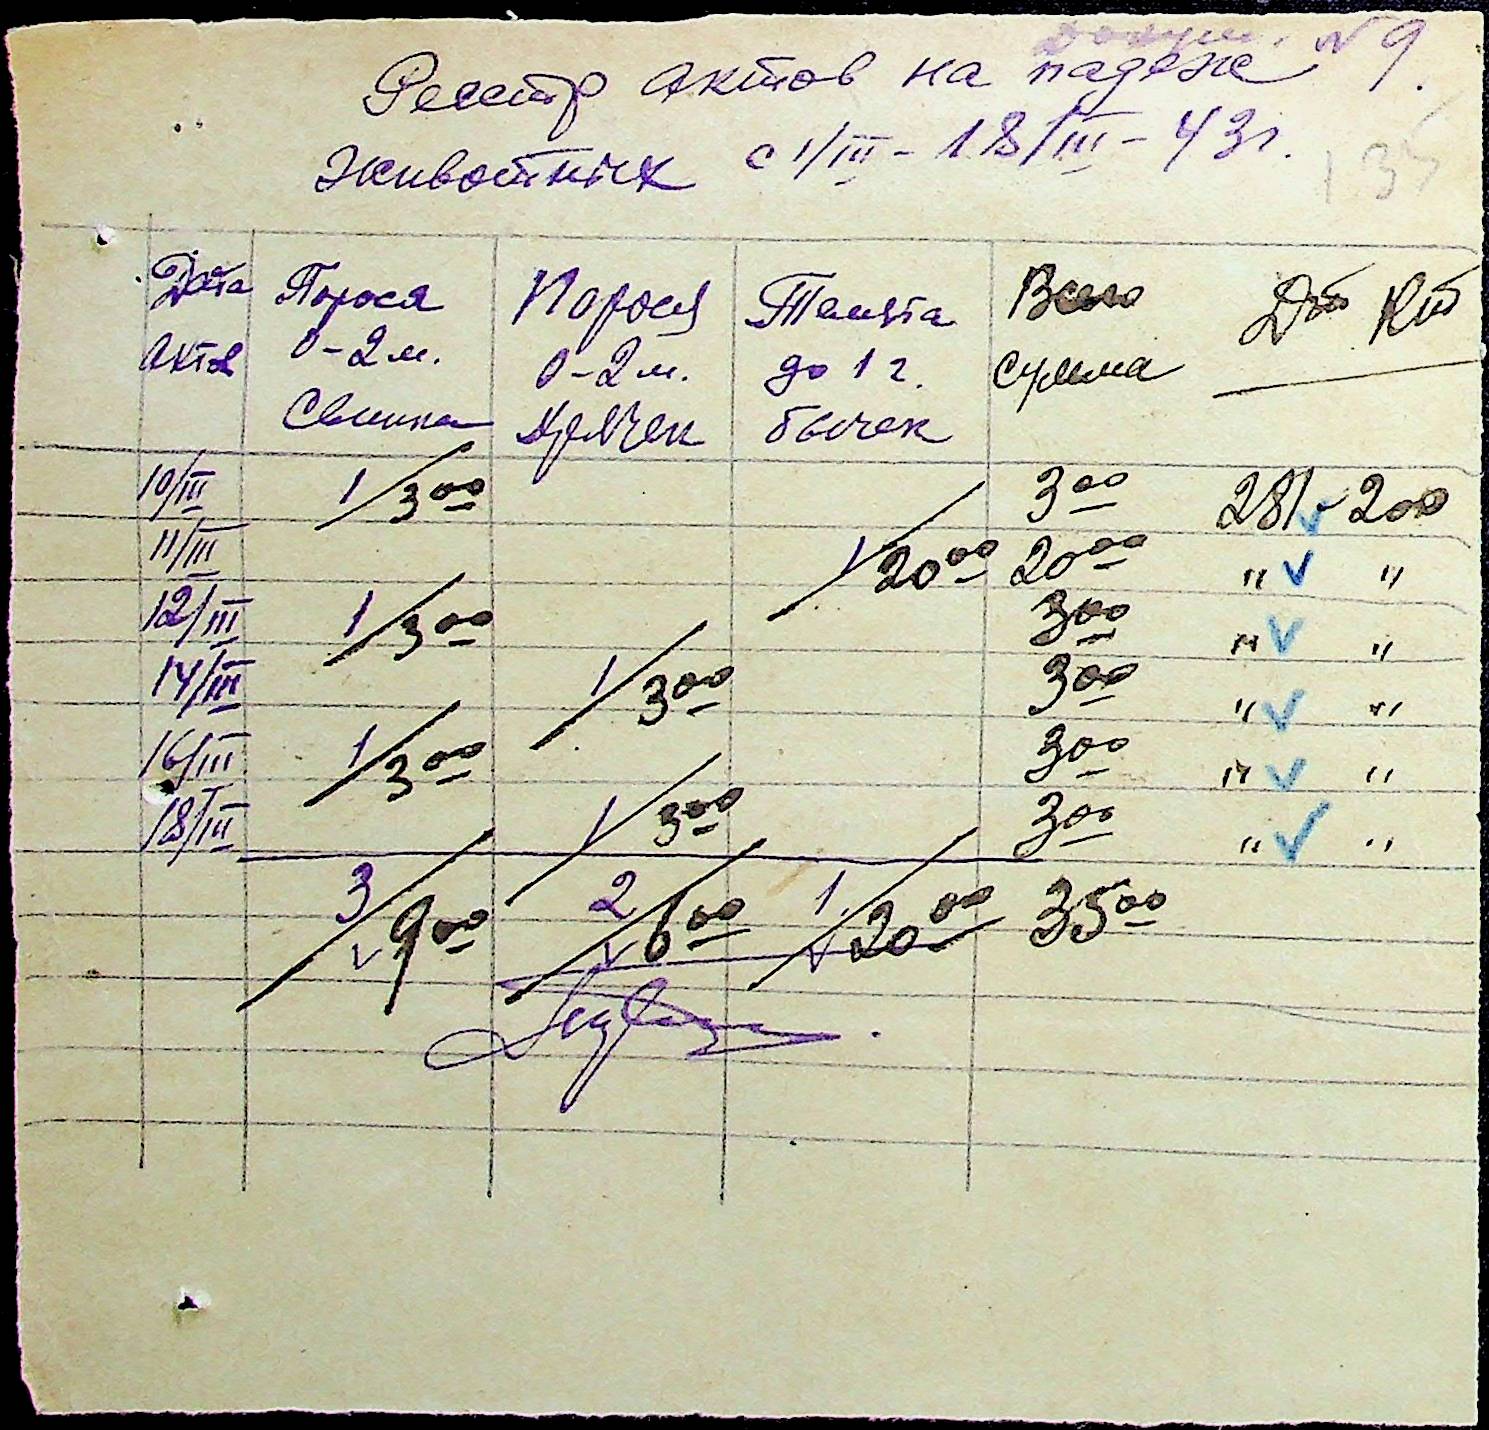 Докум. № 9.
Реестр актов на падеж
животных с 1/III - 18/III - 43г.
135
Дата акта | Порося 0-2 м. Свинка | Порося 0-2 м. | Телята до 1 г. бычек | Всего сумма | Дт Кт
10/III 1/3 00 3 00 281 - 200
11/III 1/20 00 20 00 " "
12/III 1/3 00 3 00 " "
14/III 1/3 00 3 00 " "
16/III 1/3 00 3 00 " "
18/III 1/3 00 3 00 " "
3/9 00 2/6 00 1/20 00 35 00